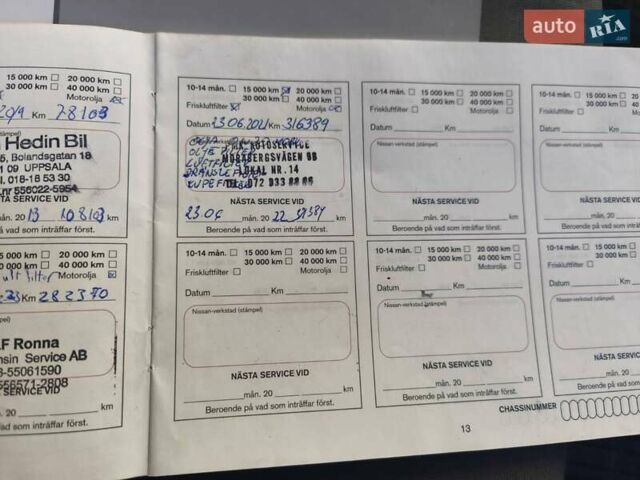 auto RIA .com
15 000 km 20 000 km
30 000 km 40 000 km
Motorolja
Km 78103
(stämpel)
Hedin Bil
5, Bolandsgatan 18
09 UPPSALA
l. 018-18 53 30
.nr 556022-5954
SERVICE VID
mån. 20 13 108103 km
på vad som inträffar först.
15 000 km 20 000 km
30 000 km 40 000 km
Motorolja
Km 282370
(stämpel)
F Ronna
Service AB
8-55061590
556571-2808
SERVICE VID
mån. 20 km
på vad som inträffar först.
10-14 mån. 15 000 km 20 000 km
30 000 km 40 000 km
Friskluftfilter Motorolja
Datum 23.06.2021 Km 316389
AUTOSERVICE
MORABERGSVÄGEN
LOKAL NR.14
TEL.072
NÄSTA SERVICE VID
23.06 mån. 20 22 km
Beroende på vad som inträffar först.
10-14 mån. 15 000 km 20 000 km
30 000 km 40 000 km
Friskluftfilter Motorolja
Datum Km
Nissan-verkstad (stämpel)
NÄSTA SERVICE VID
mån. 20 km
Beroende på vad som inträffar först.
10-14 mån. 15 000 km 20 000 km
30 000 km 40 000 km
Friskluftfilter Motorolja
Datum Km
Nissan-verkstad (stämpel)
NÄSTA SERVICE VID
mån. 20 km
Beroende på vad som inträffar först.
10-14 mån. 15 000 km 20 000 km
30 000 km 40 000 km
Friskluftfilter Motorolja
Datum Km
Nissan-verkstad (stämpel)
NÄSTA SERVICE VID
mån. 20 km
Beroende på vad som inträffar först.
10-14 mån. 15 000
30 000
Friskluftfilter
Datum
Nissan-verkstad (stämpel)
NÄSTA SERVICE
mån. 20
Beroende på vad som
10-14 mån. 15 000
30 000
Friskluftfilter
Datum
Nissan-verkstad (stämpel)
NÄSTA SERVICE
mån. 20
Beroende på vad som
CHASSINUMMER
13